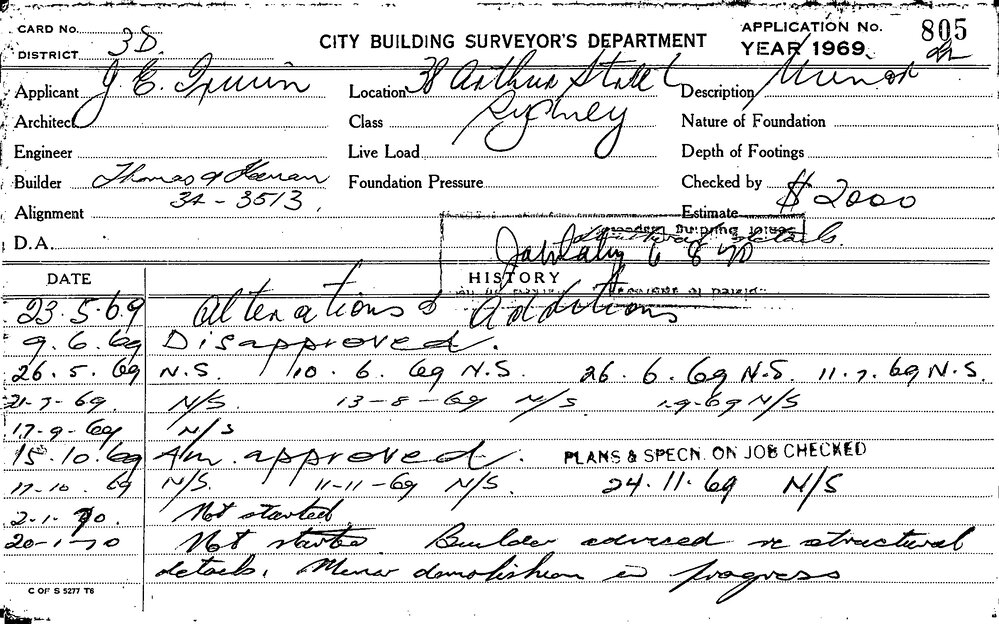 CARD No. APPLICATION No. 805
DISTRICT 3D. CITY BUILDING SURVEYOR'S DEPARTMENT YEAR 1969
Applicant J. E. Irwin Location 38 Arthur Street Description Minor
Architect Class Sydney Nature of Foundation
Engineer Live Load Depth of Footings
Builder Thomas & Keenan Foundation Pressure Checked by
34-3513. $2000
Alignment Estimate
D.A. details.
6 8 70
DATE HISTORY
23.5.69 Alterations & Additions
9.6.69 Disapproved.
26.5.69 N.S. 10.6.69 N.S. 26.6.69 N.S. 11.7.69 N.S.
21-7-69. N/S. 13-8-69 N/S 1.9-69 N/S
17-9-69 N/S
15.10.69 Am. approved. PLANS & SPECN. ON JOB CHECKED
17-10.69 N/S. 11-11-69 N/S. 24.11.69 N/S
2-1-70. Not started
20-1-70 Not started Builder advised re structural
details. Minor demolishion in progress
C OF S 5277 T6